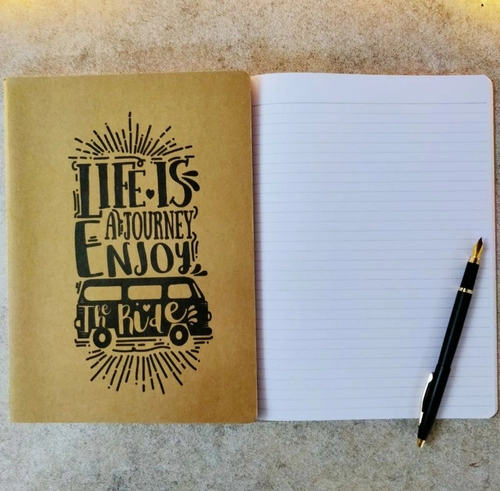 LIFE IS
A JOURNEY
ENJOY
The Ride